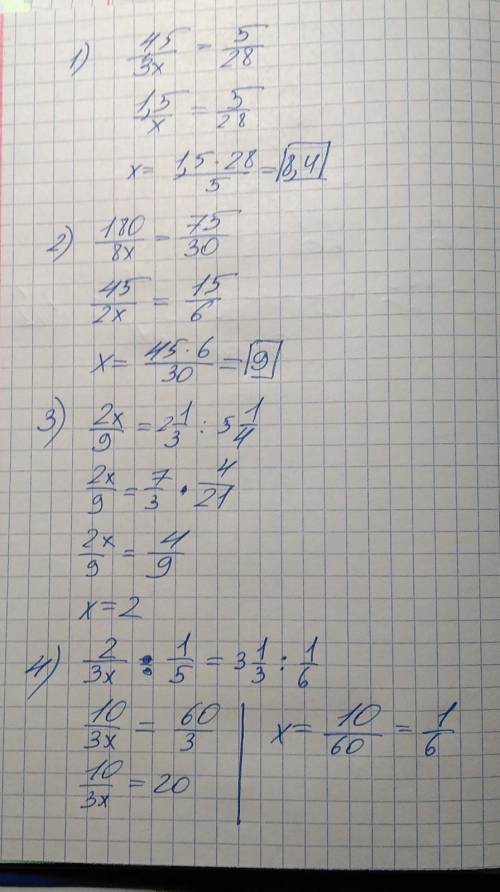 1) 45/3x = 5/28
1,5/x = 5/28
x = 1,5 · 28/5 = 8,4
2) 180/8x = 75/30
45/2x = 15/6
x = 45 · 6/30 = 9
3) 2x/9 = 2 1/3 : 5 1/4
2x/9 = 7/3 · 4/21
2x/9 = 4/9
x = 2
4) 2/3x : 1/5 = 3 1/3 : 1/6
10/3x = 60/3
10/3x = 20
x = 10/60 = 1/6